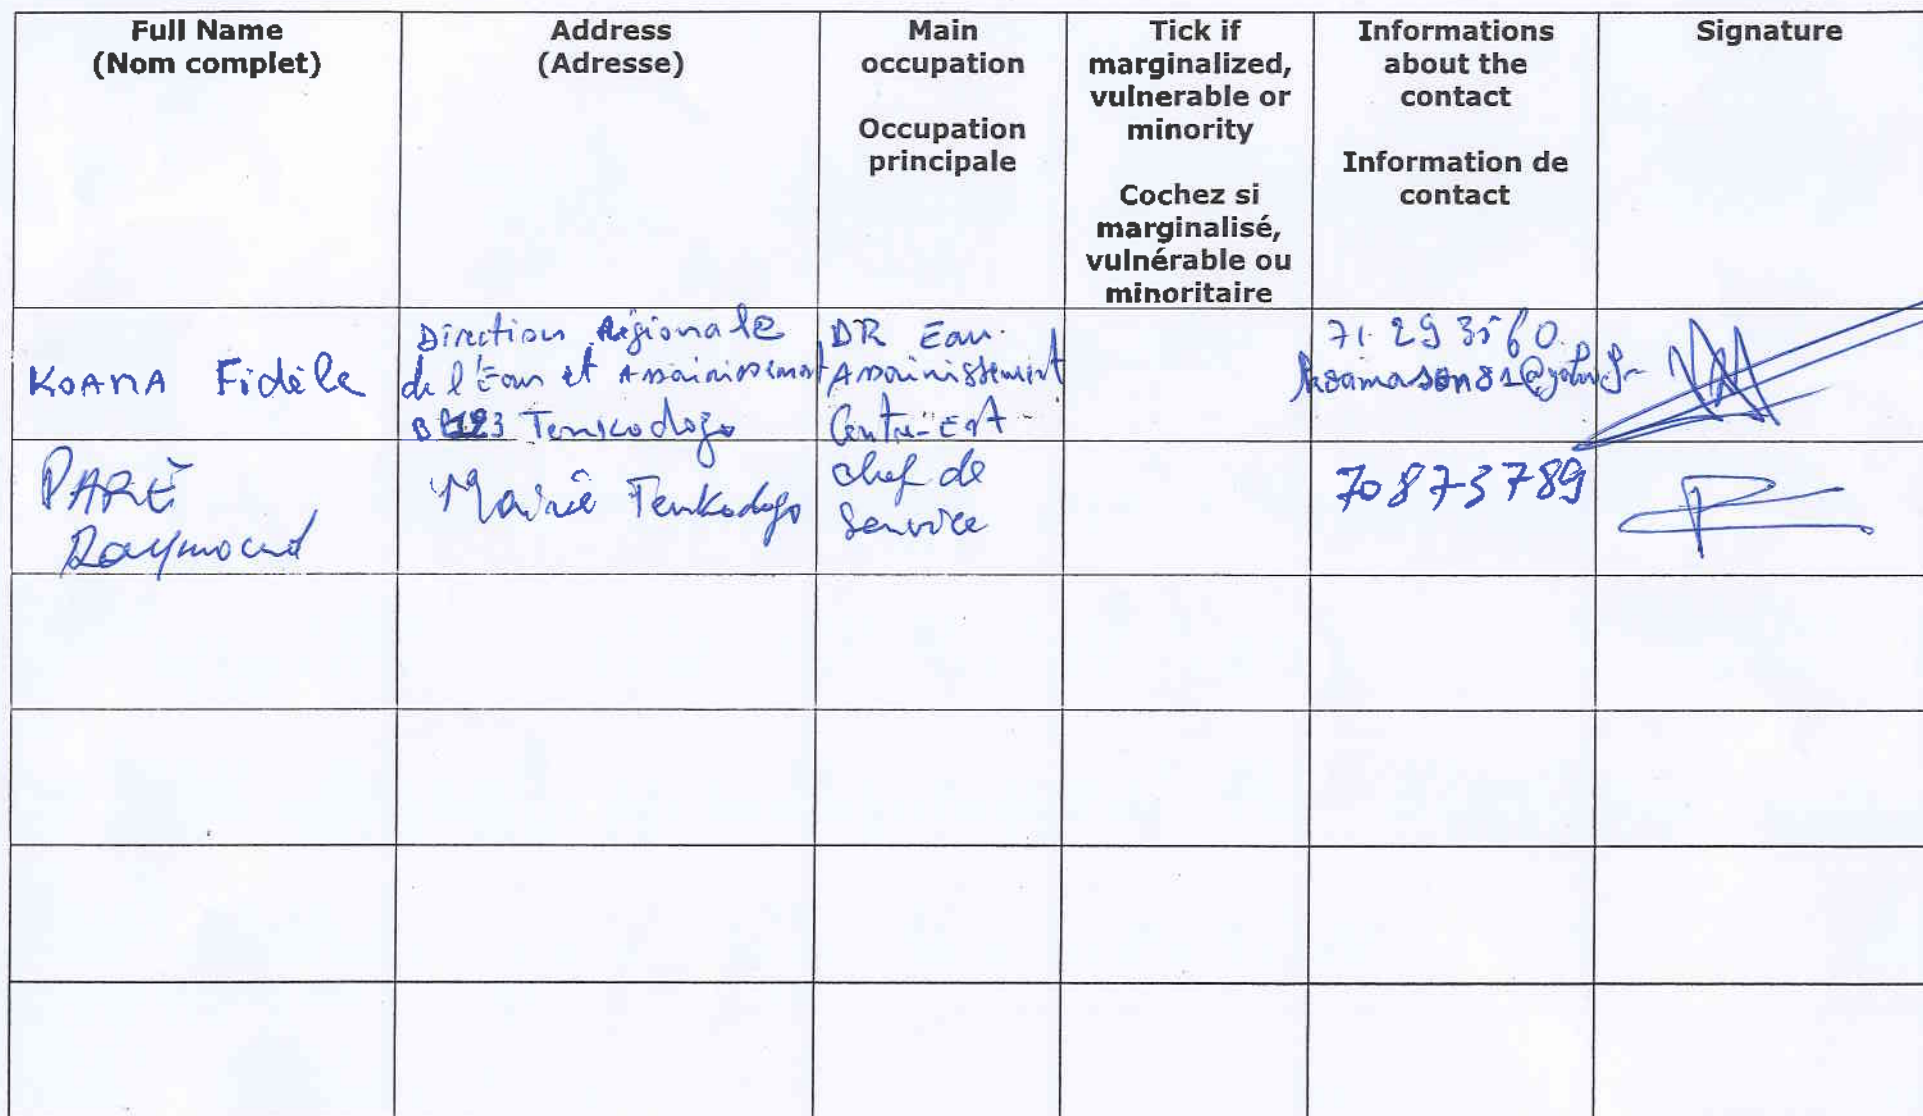 Full Name
(Nom complet)
Address
(Adresse)
Main
occupation
Occupation
principale
Tick if
marginalized,
vulnerable or
minority
Cochez si
marginalisé,
vulnérable ou
minoritaire
Informations
about the
contact
Information de
contact
Signature
KOAMA Fidèle
Direction Régionale
de l'Eau et Assainissement
B 123 Tenkodogo
DR Eau
Assainissement
Centre-Est
71 29 35 60
PARÉ
Raymond
Mairie Tenkodogo
chef de
Service
70873789